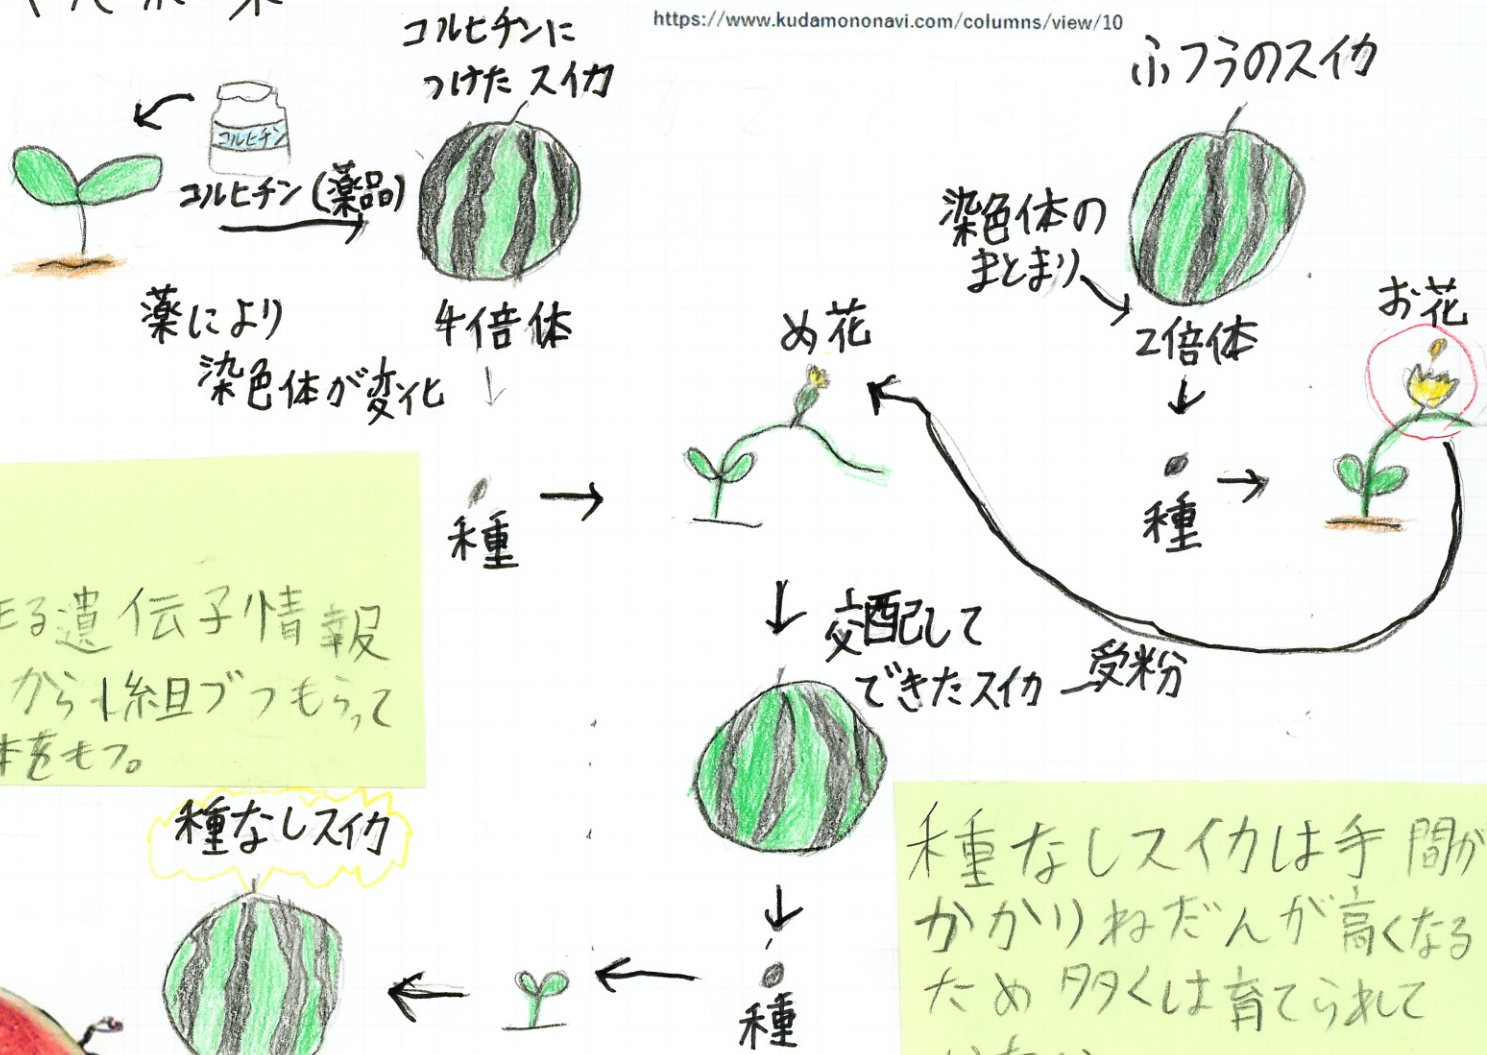 https://www.kudamononavi.com/columns/view/10
コルヒチンに
つけたスイカ
ふつうのスイカ
コルヒチン
コルヒチン(薬品)
染色体の
まとまり
薬により
染色体が変化
4倍体
め花
2倍体
お花
種
種
る遺伝子情報
から1組ずつもらって
をもつ。
交配して
できたスイカ
受粉
種なしスイカ
種なしスイカは手間が
かかりねだんが高くなる
ため多くは育てられて
種